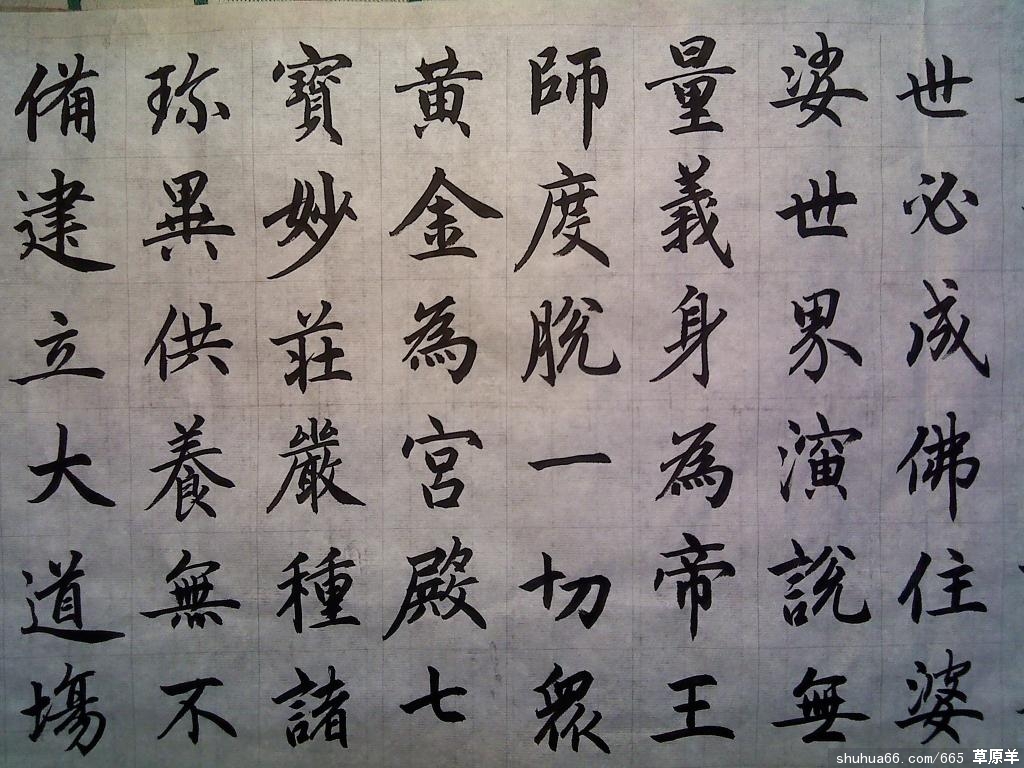 世必成佛住婆
娑世界演說無
量義身為帝王
師度脫一切眾
黃金為宮殿七
寶妙莊嚴種諸
珎異供養無不
備建立大道場
shuhua66.com/665 草原羊